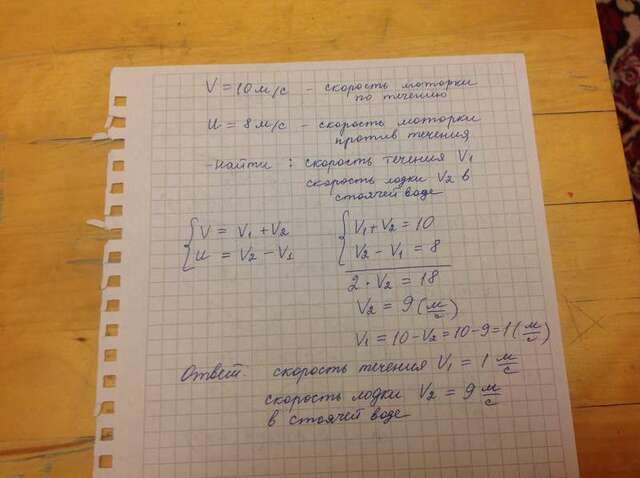 V = 10 м/с - скорость моторки
по течению
U = 8 м/с - скорость моторки
против течения
Найти: скорость течения V₁
скорость лодки V₂ в
стоячей воде
{ V = V₁ + V₂
U = V₂ - V₁
{ V₁ + V₂ = 10
V₂ - V₁ = 8
2 · V₂ = 18
V₂ = 9 (м/с)
V₁ = 10 - V₂ = 10 - 9 = 1 (м/с)
Ответ. скорость течения V₁ = 1 м/с
скорость лодки V₂ = 9 м/с
в стоячей воде